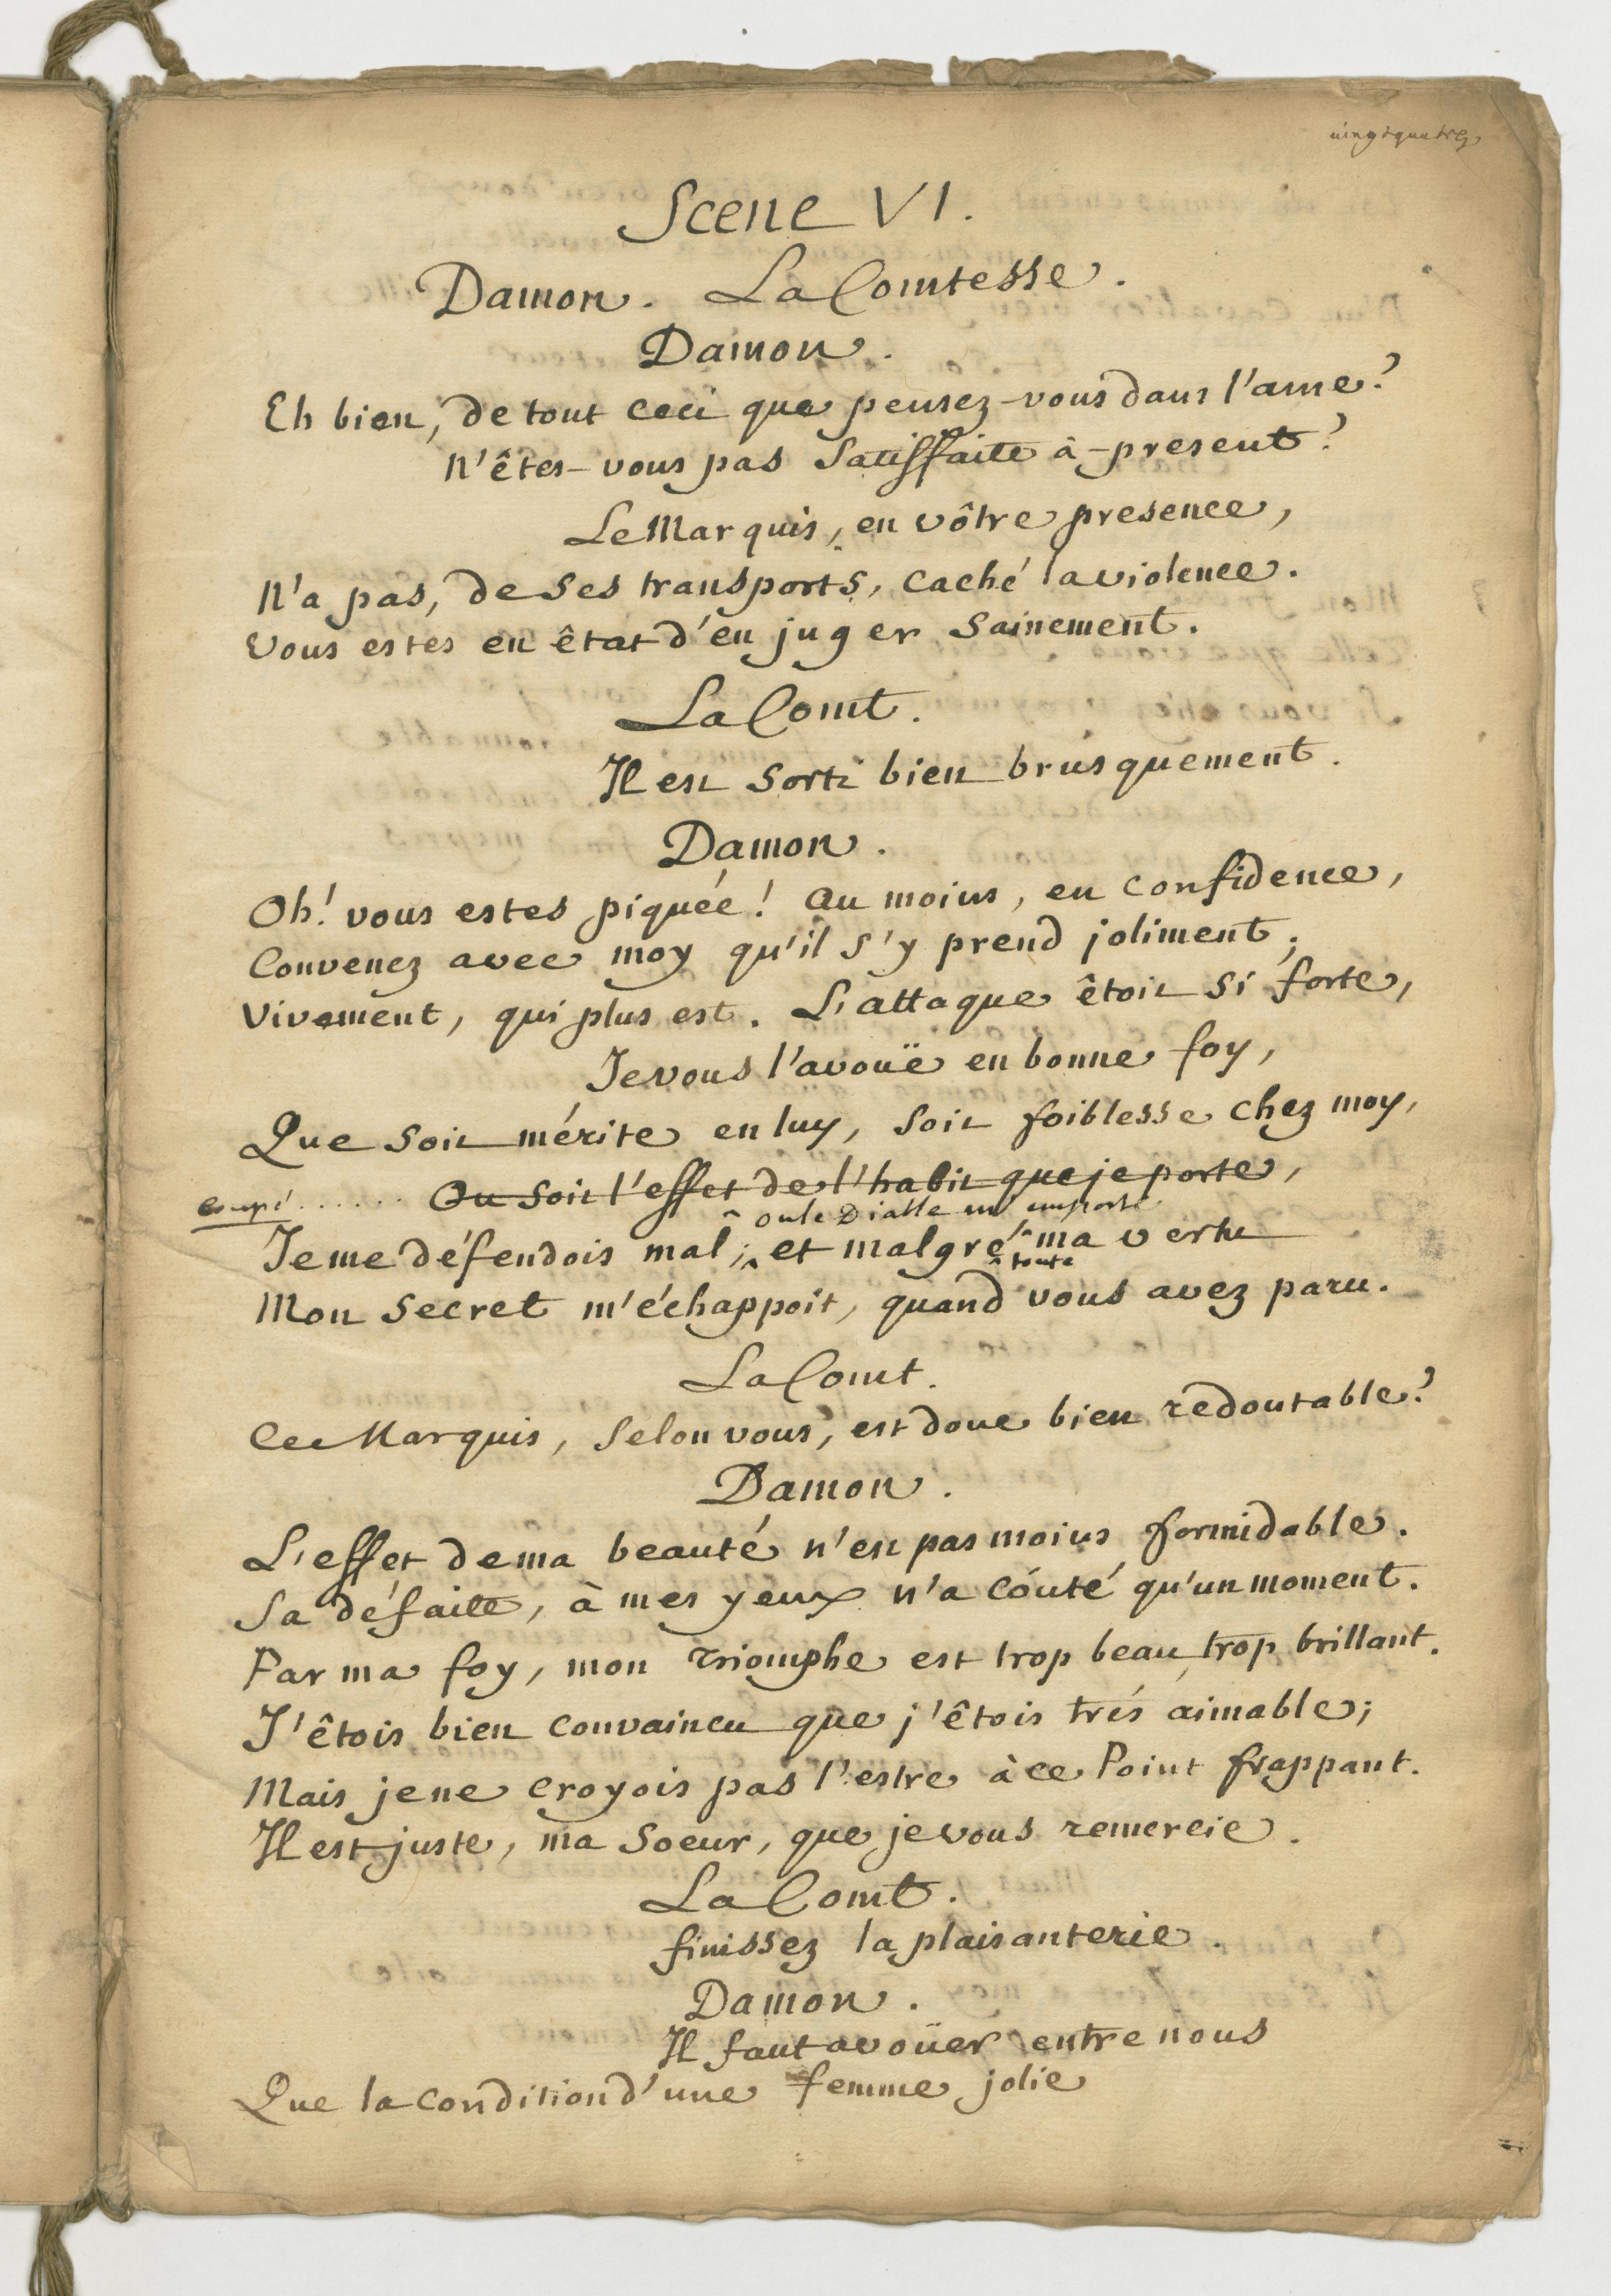 vingtquatre
Scene VI.
Damon. La Comtesse.
Damon.
Eh bien, de tout ceci que pensez-vous dans l'ame?
N'êtes-vous pas satisfaite à-present?
Le Marquis, en vôtre presence,
N'a pas, de ses transports, caché la violence.
Vous estes en êtat d'en juger sainement.
La Comt.
Il est sorti bien brusquement.
Damon.
Oh! vous estes piquée! au moins, en confidence,
Convenez avec moy qu'il s'y prend joliment;
Vivement, qui plus est. L'attaque êtoit si forte,
Je vous l'avoüe en bonne foy,
Que soit mérite en luy, soit foiblesse chez moy,
coupé ...... Ou soit l'effet de l'habit que je porte,
ou le Diable m'emporte
Je me défendois mal; et malgré ma vertu
toute
Mon secret m'échappoit, quand vous avez paru.
La Comt.
Ce Marquis, selon vous, est donc bien redoutable?
Damon.
L'effet de ma beauté n'est pas moins formidable.
Sa défaite, à mes yeux n'a coúté qu'un moment.
Par ma foy, mon triomphe est trop beau, trop brillant.
J'êtois bien convaincu que j'êtois trés aimable;
Mais je ne croyois pas l'estre à ce Point frappant.
Il est juste, ma soeur, que je vous remercie.
La Comt.
finissez la plaisanterie.
Damon.
Il faut avoüer entre nous
Que la condition d'une femme jolie